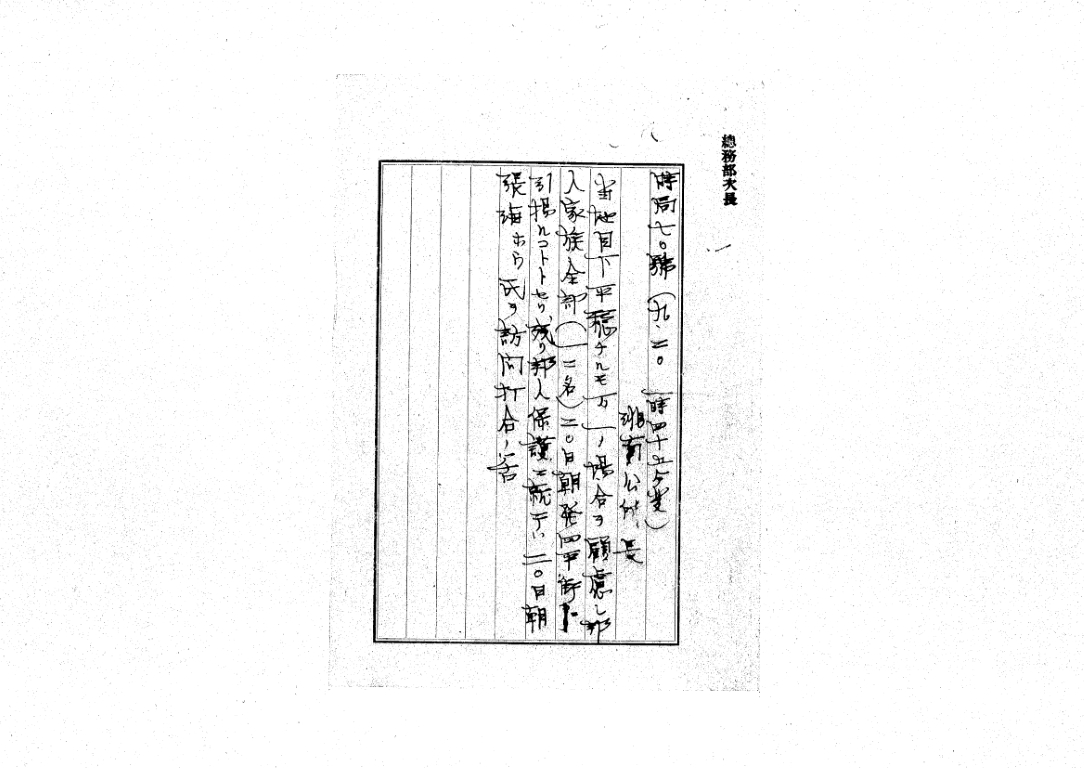 總務部次長
時局七〇號（九、二〇 一時四十五分発）
公所長
当地目下平穏ナルモ万一ノ場合ヲ顧慮シ邦
人家族全部（一二名）二〇日朝発四平街ニ
引揚ルコトトセリ、残リ邦人保護ニ就テハ二〇日朝
張海 氏ヲ訪問打合ノ筈